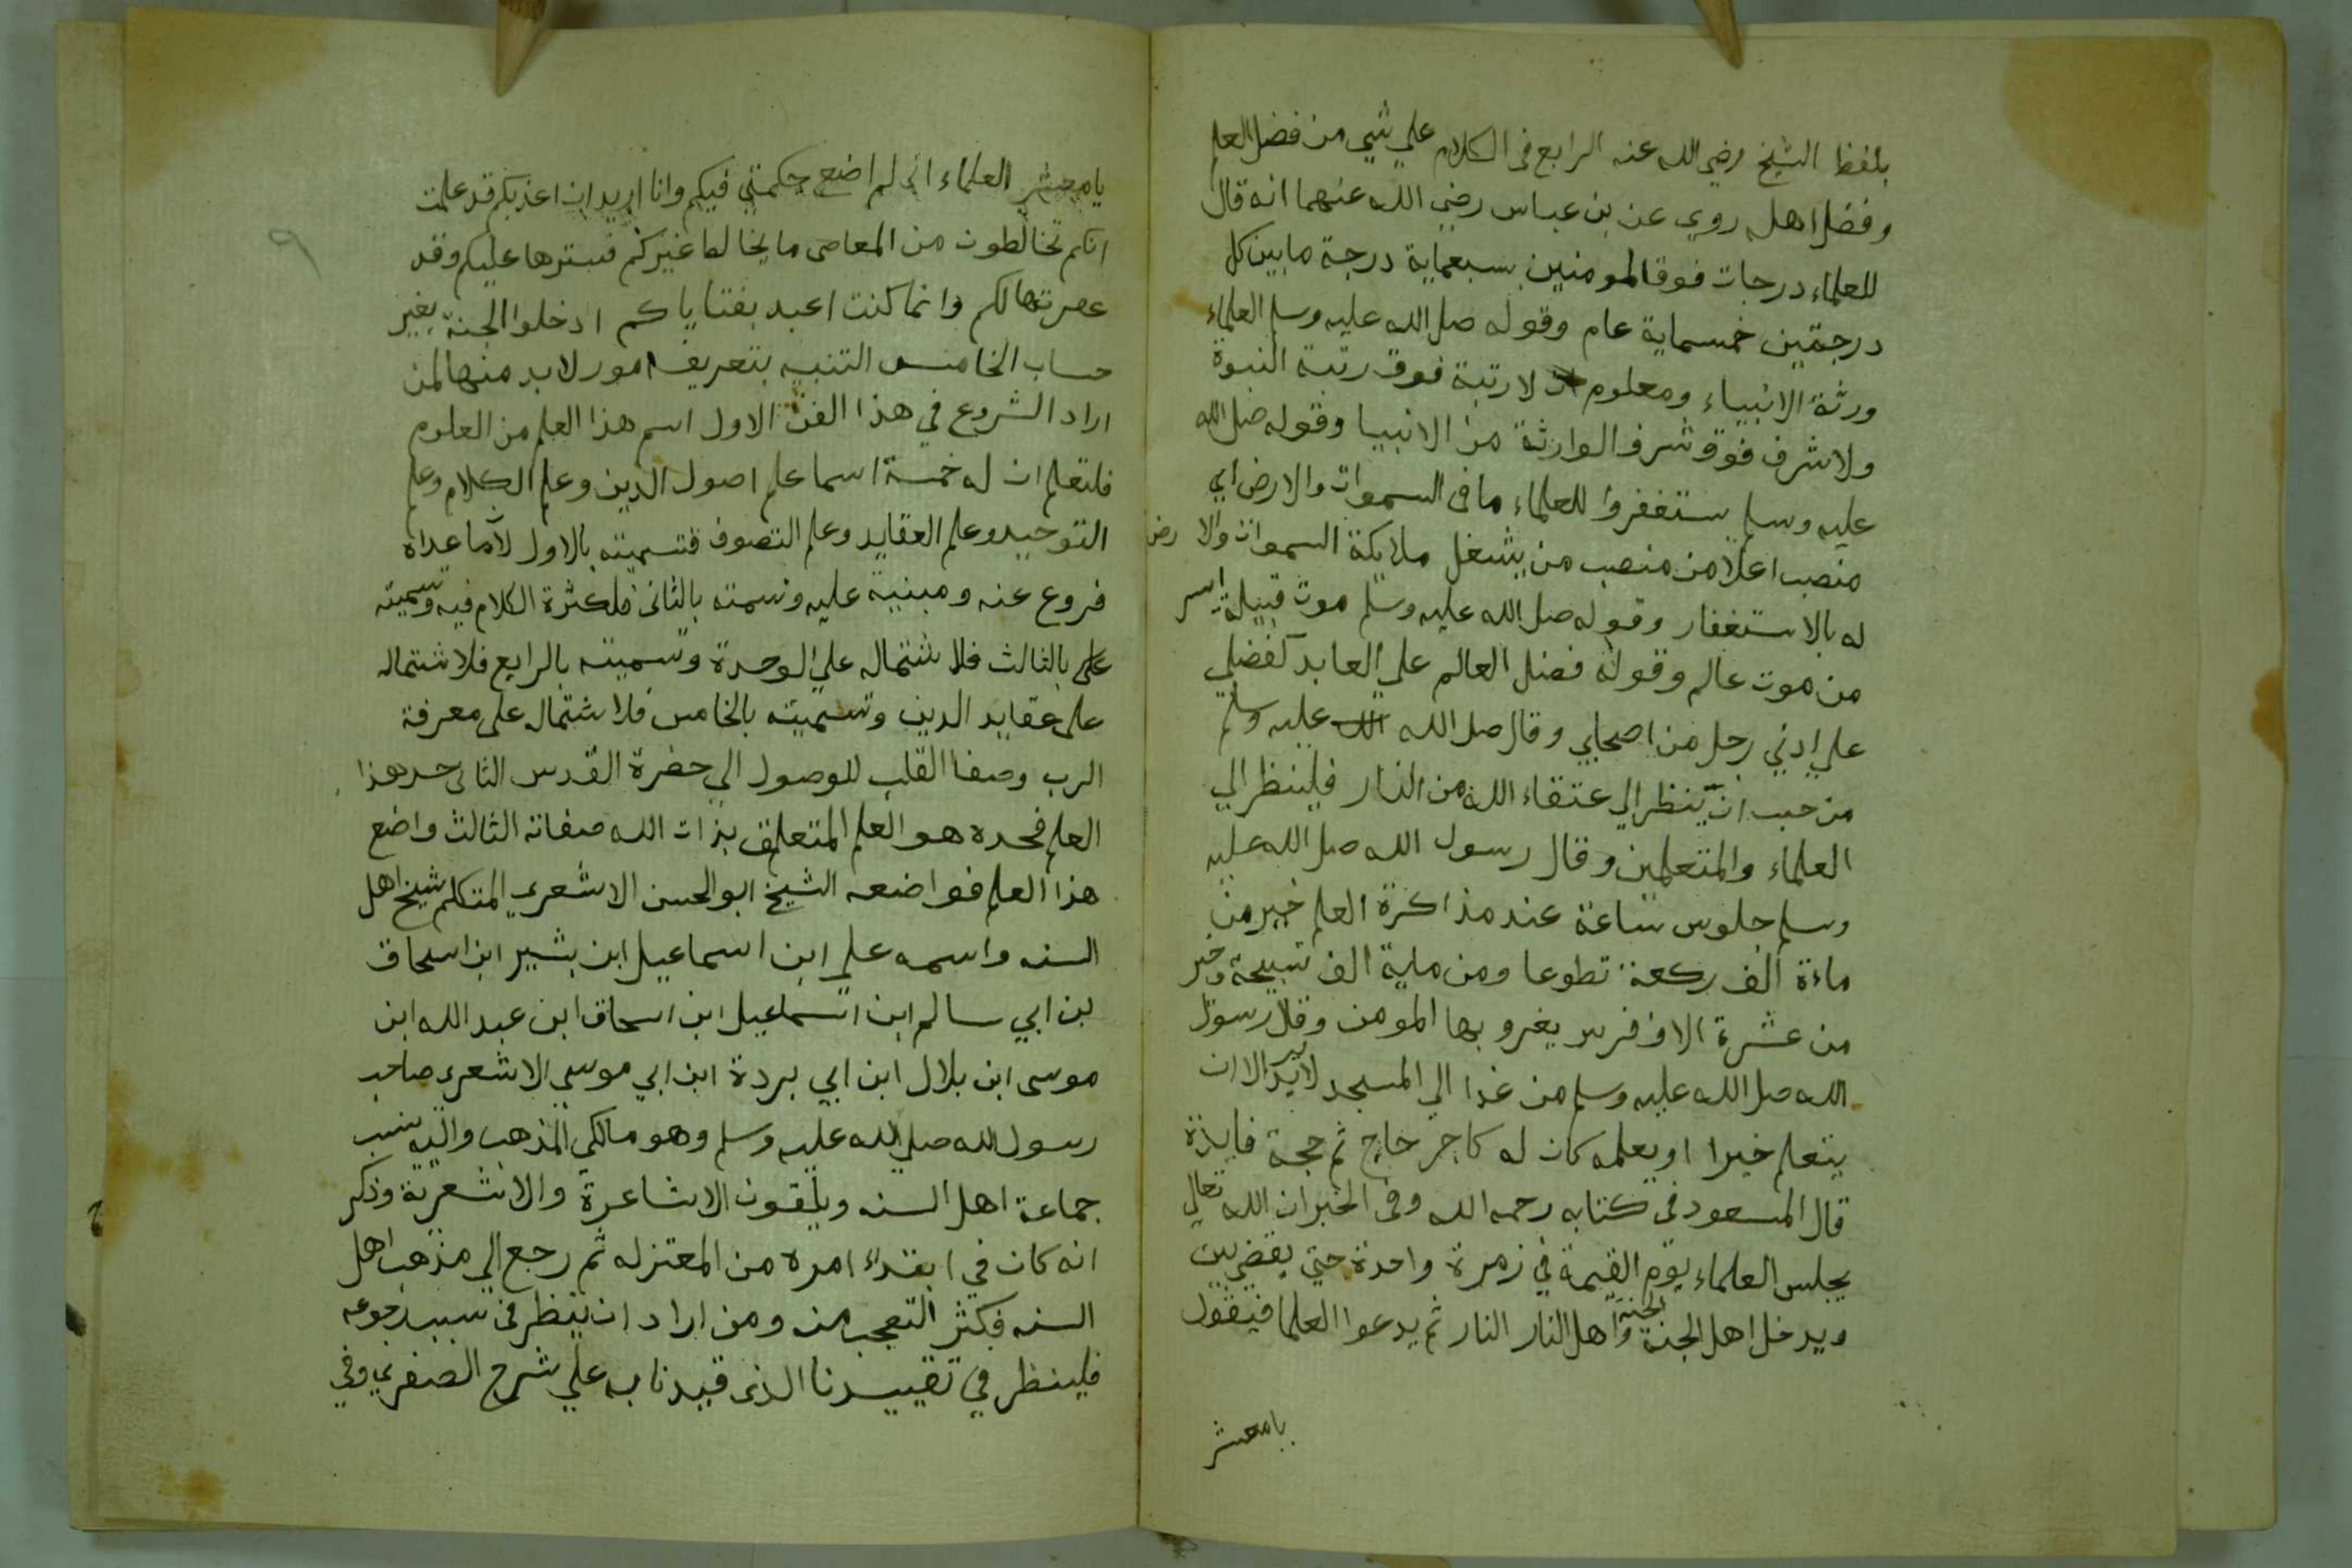 بلفظ الشيخ رضي الله عنه الرابع فى الكلام علي شيي من فضل العلم
وفضل اهله روي عن بن عباس رضي الله عنهما انه قال
للعلماء درجات فوق المومنين بسبعماية درجة ما بين كل
درجتين خمسماية عام وقوله صل الله عليه وسلم العلماء
ورثة الانبياء ومعلوم ان لا رتبة فوق رتبة النبوة
ولا شرف فوق شرف الوارثة من الانبيا وقوله صل الله
عليه وسلم يستغفروا للعلماء ما فى السموات والارض اي
منصب اعلا من منصب من يشغل ملايكة السموات والارض
له بالاستغفار وقوله صل الله عليه وسلم موت قبيلة ايسر
من موت عالم وقوله فضل العالم علي العابد كفضلي
علي ادني رجل من اصحابي وقال صل الله عليه وسلم
من حب ان ينظر الي عتقاء الله من النار فلينظر الي
العلماء والمتعلمين وقال رسول الله صل الله عليه
وسلم جلوس ساعة عند مذاكرة العلم خير من
ماءة الف ركعة تطوعا ومن ماية الف تسبيحة وخير
من عشرة الاف فرس يغزو بها المومن وقال رسول
الله صل الله عليه وسلم من غدا الي المسجد لا يريد الا ان
يتعلم خيرا او يعلمه كان له كاجر حاج ثم حجة فايدة
قال المسعود في كتابه رحمه الله وفى الخبر ان الله تعالي
يجلس العلماء يوم القيمة في زمرة واحدة حتي يقضي بين
ويدخل اهل الجنة الجنة واهل النار النار ثم يدعوا العلما فيقول
يامعشر
٩
يا معشر العلماء انى لم اضع حكمتي فيكم وانا اريد ان اعذبكم قد علمت
انكم تخالطون من المعاصى ما يخالط غيركم فسترها عليكم وقد
غفرتها لكم وانما كنت اعبد بفتاياكم ادخلوا الجنة بغير
حساب الخامس التنبيه بتعريف امور لا بد منها لمن
اراد الشروع في هذا الفن الاول اسم هذا العلم من العلوم
فلتعلم ان له خمسة اسما علم اصول الدين وعلم الكلام وعلم
التوحيد وعلم العقايد وعلم التصوف فتسميته بالاول لان ما عداه
فروع عنه ومبنية عليه وتسمته بالثانى فلكثرة الكلام فيه وتسميته
على بالثالث فلاشتماله علي الوحدة وتسميته بالرابع فلاشتماله
على عقايد الدين وتسميته بالخامس فلاشتماله على معرفة
الرب وصفا القلب للوصول الي حضرة القدس الثانى حد هذا
العلم فحده هو العلم المتعلق بذات الله صفاته الثالث واضع
هذا العلم فواضعه الشيخ ابو الحسن الاشعري المتكلم شيخ اهل
السنه واسمه علي ابن اسماعيل ابن بشير ابن اسحاق
بن ابي سالم ابن اسماعيل ابن اسحاق ابن عبد الله ابن
موسى ابن بلال ابن ابي بردة ابن ابي موسي الاشعرى صاحب
رسول الله صلي الله عليه وسلم وهو مالكي المذهب واليه ينسب
جماعة اهل السنه ويلقون الاشاعرة والاشعرية وذكر
انه كان في ابتداء امره من المعتزله ثم رجع الي مذهب اهل
السنه فكثر التعجب منه ومن اراد ان ينظر فى سبب رجوعه
فلينظر في تقييدنا الذى قيدنا به علي شرح الصغري وفي